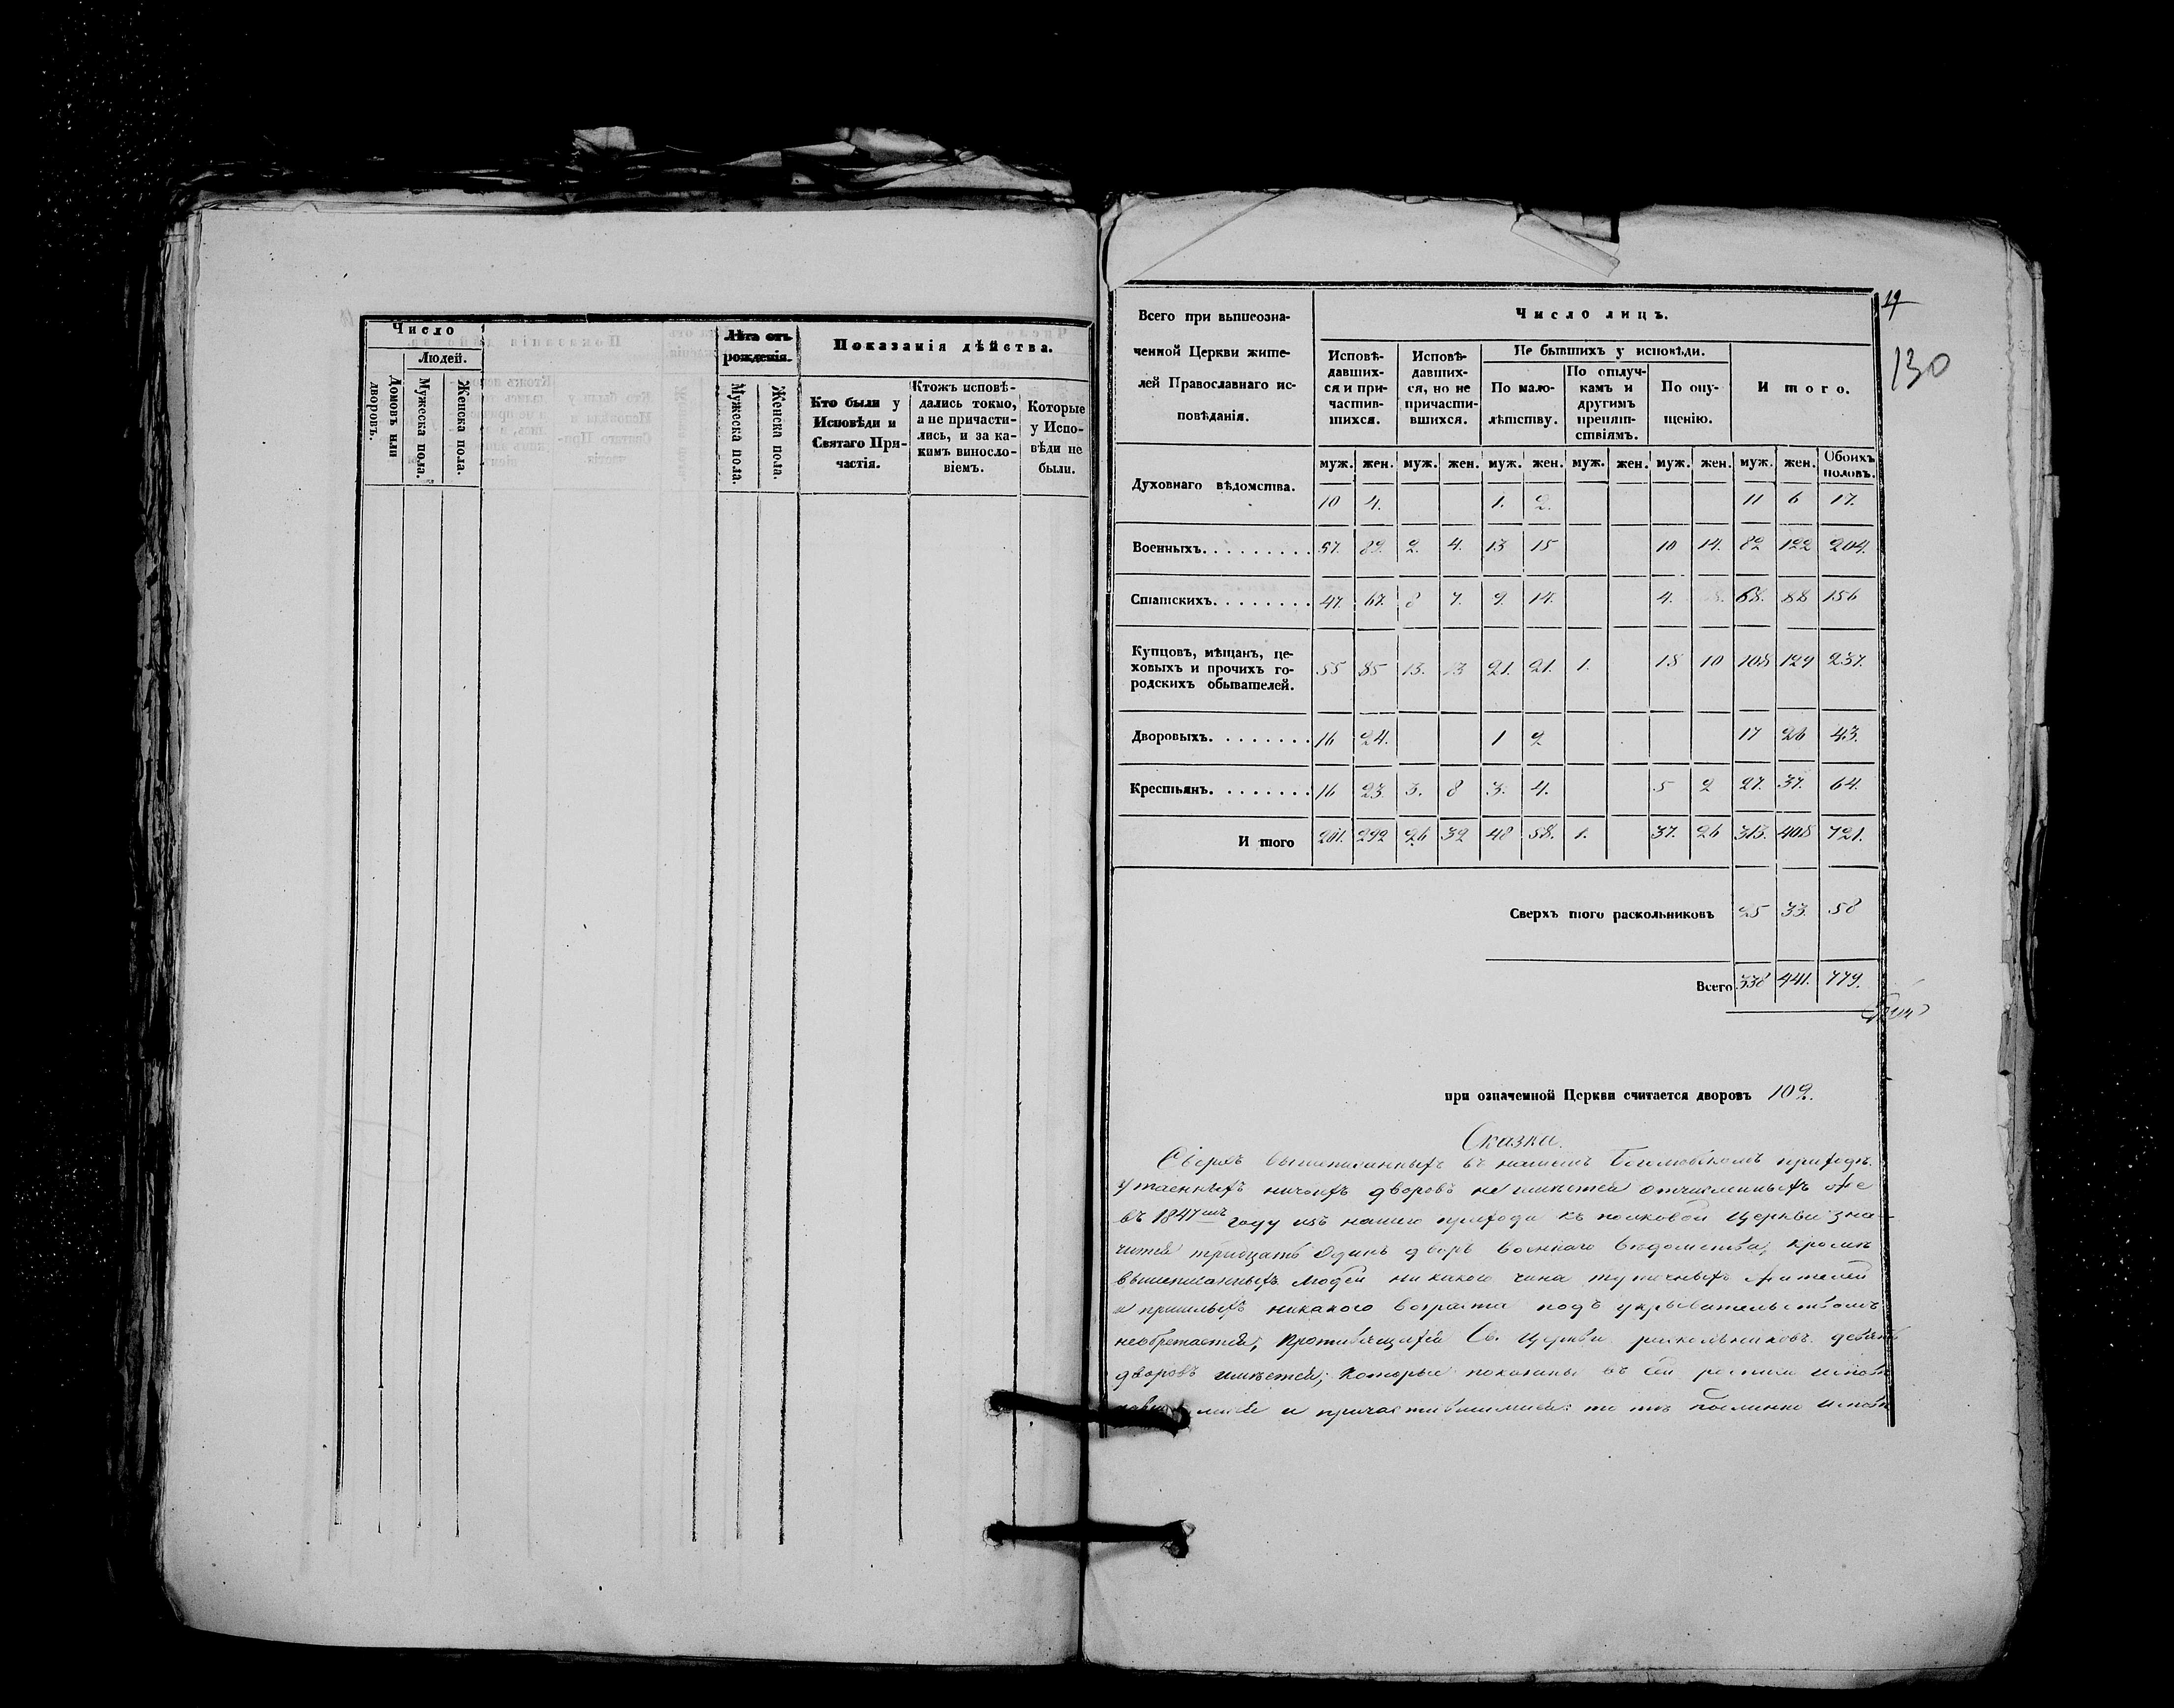 Число
Людей.
Домовъ или дворовъ.
Мужеска пола.
Женска пола.
Лѣта отъ рожденія.
Мужеска пола.
Женска пола.
Показанія дѣйства.
Кто были у
Исповѣди и
Святаго При-
частія.
Ктожъ исповѣ-
дались токмо,
а не причасти-
лись, и за ка-
кимъ винословіемъ.
Которые
у Испо-
вѣди не
были.
17
130
Всего при вышеозна-
ченной Церкви жите-
лей Православнаго ис-
повѣданія.
Число лицъ.
Исповѣ-
давших-
ся и при-
частив-
шихся.
Исповѣ-
давших-
ся, но не
причасти-
вшихся.
Не бывшихъ у исповѣди.
По мало-
лѣтству.
По отлуч-
камъ и
другимъ
препят-
ствіямъ.
По опу-
щенію.
Итого.
муж. жен. муж. жен. муж. жен. муж. жен. муж. жен. муж. жен. Обоихъ половъ.
Духовнаго вѣдомства. 10 4. 1. 2. 11 6 17.
Военныхъ. 57. 89. 2. 4. 13 15 10 14. 82 122 204.
Статскихъ. 47. 67. 8 7. 9. 14. 4. 68. 88 156
Купцовъ, мѣщанъ, це-
ховыхъ и прочихъ го-
родскихъ обывателей. 55 85 13. 13 21. 21. 1. 18 10 108 129 237.
Дворовыхъ. 16 24. 1 2 17 26 43.
Крестьянъ. 16 23. 3. 8 3. 4. 5 2 27. 37. 64.
И того 201. 292 26 32 48 58. 1. 37. 26 313. 408 721.
Сверхъ того раскольниковъ 25 33. 58
Всего 338 441. 779.
при означенной Церкви считается дворовъ 109.
Сказка.
Сверхъ вышеписанныхъ въ нашемъ приходѣ
утаенныхъ ничьихъ дворовъ не имѣется отчисленныхъ же
въ 1847мъ году изъ нашего прихода къ полковой Церкви зна-
чится тридцать одинъ дворъ военнаго вѣдомства; кромѣ
вышеписанныхъ людей никакого чина тутошныхъ жителей
и пришлыхъ никакого возраста подъ укрывательствомъ
необретается; противящихся Св. Церкви раскольниковъ девять
дворовъ имѣется; которые показаны въ сей росписи исповѣ
и причастившимися: то тѣ